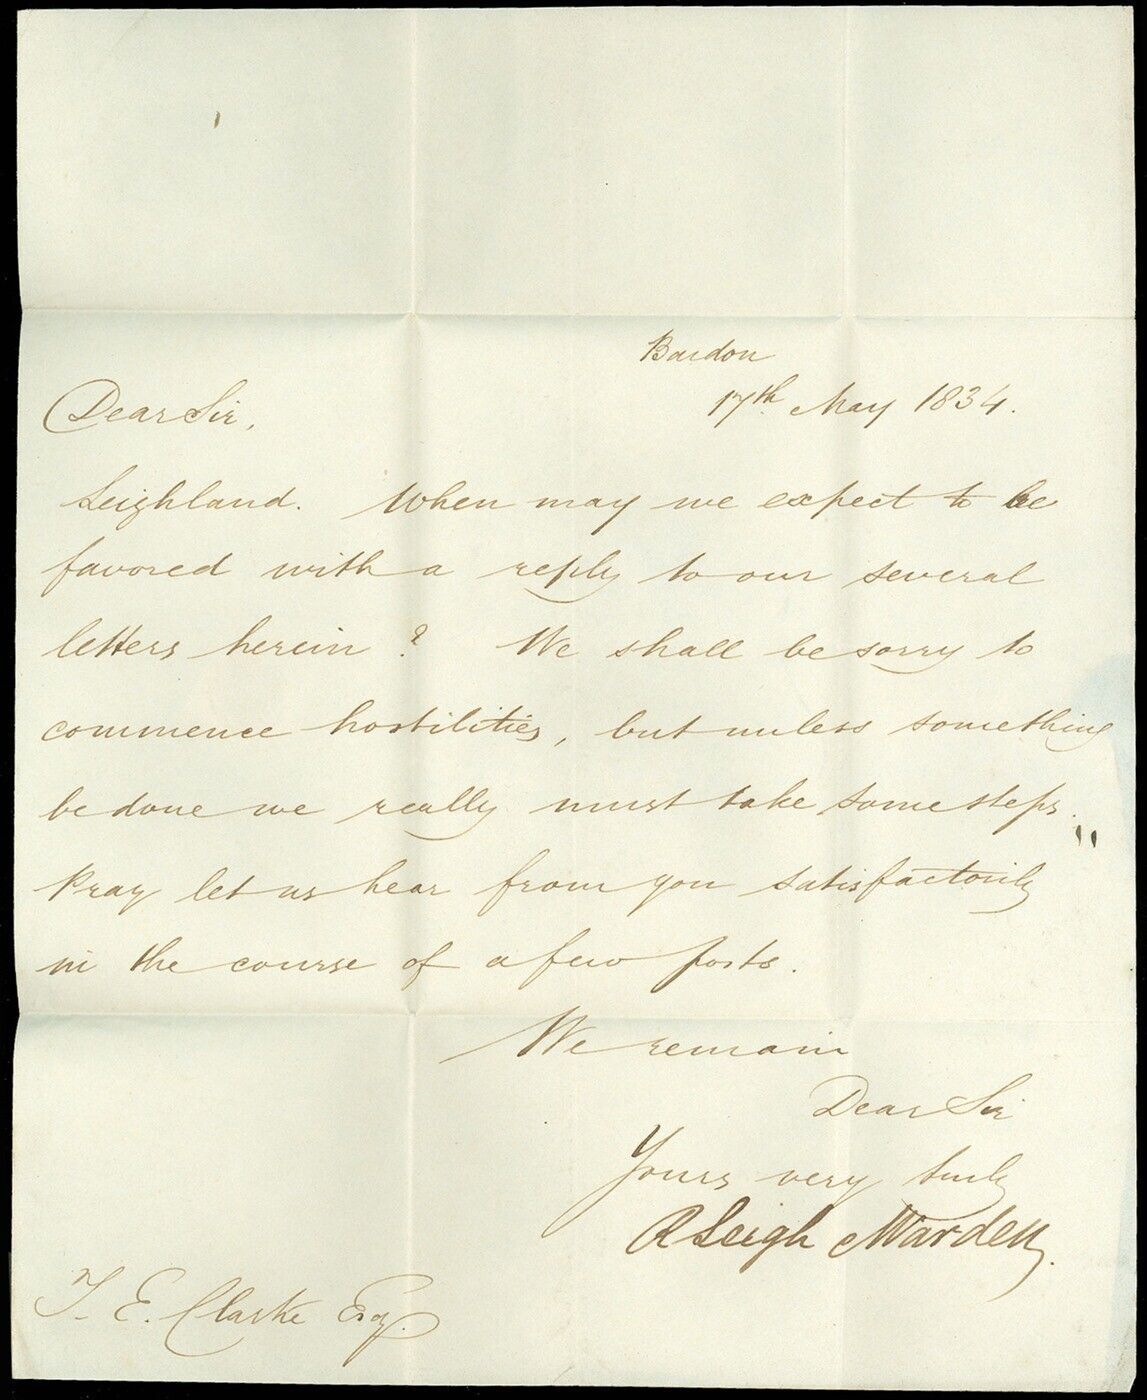 Bardon
17th May 1834.
Dear Sir,
Leighland. When may we expect to be
favored with a reply to our several
letters herein? We shall be sorry to
commence hostilities, but unless something
be done we really must take some steps.
Pray let us hear from you satisfactorily
in the course of a few posts.
We remain
Dear Sir
Yours very truly
R Leigh Marden
T. E. Clarke Esq.